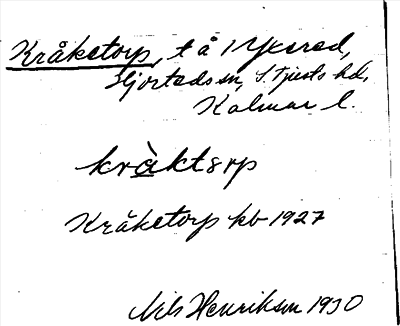 Kråketorp, t å 1 Ykered,
Hjorteds sn, S. Tjusts hd,
Kalmar l.
kràktɛrp
Kråketorp kb 1927
Nils Henriksson 1930